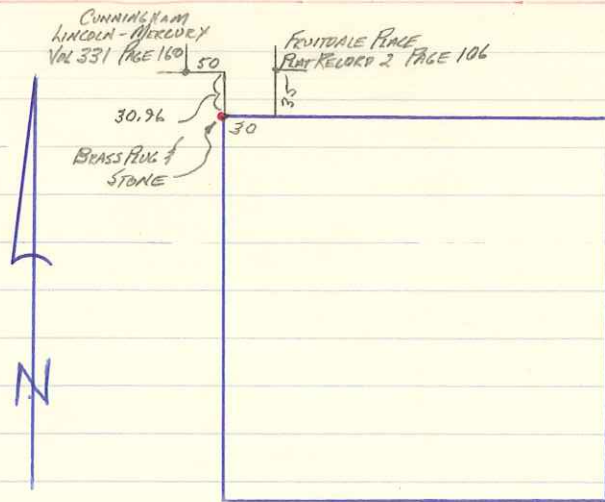 CUNNINGHAM
LINCOLN-MERCURY
VOL 331 PAGE 160
50
FRUITDALE PLACE
PLAT RECORD 2 PAGE 106
35
30.96
30
BRASS PLUG &
STONE
N